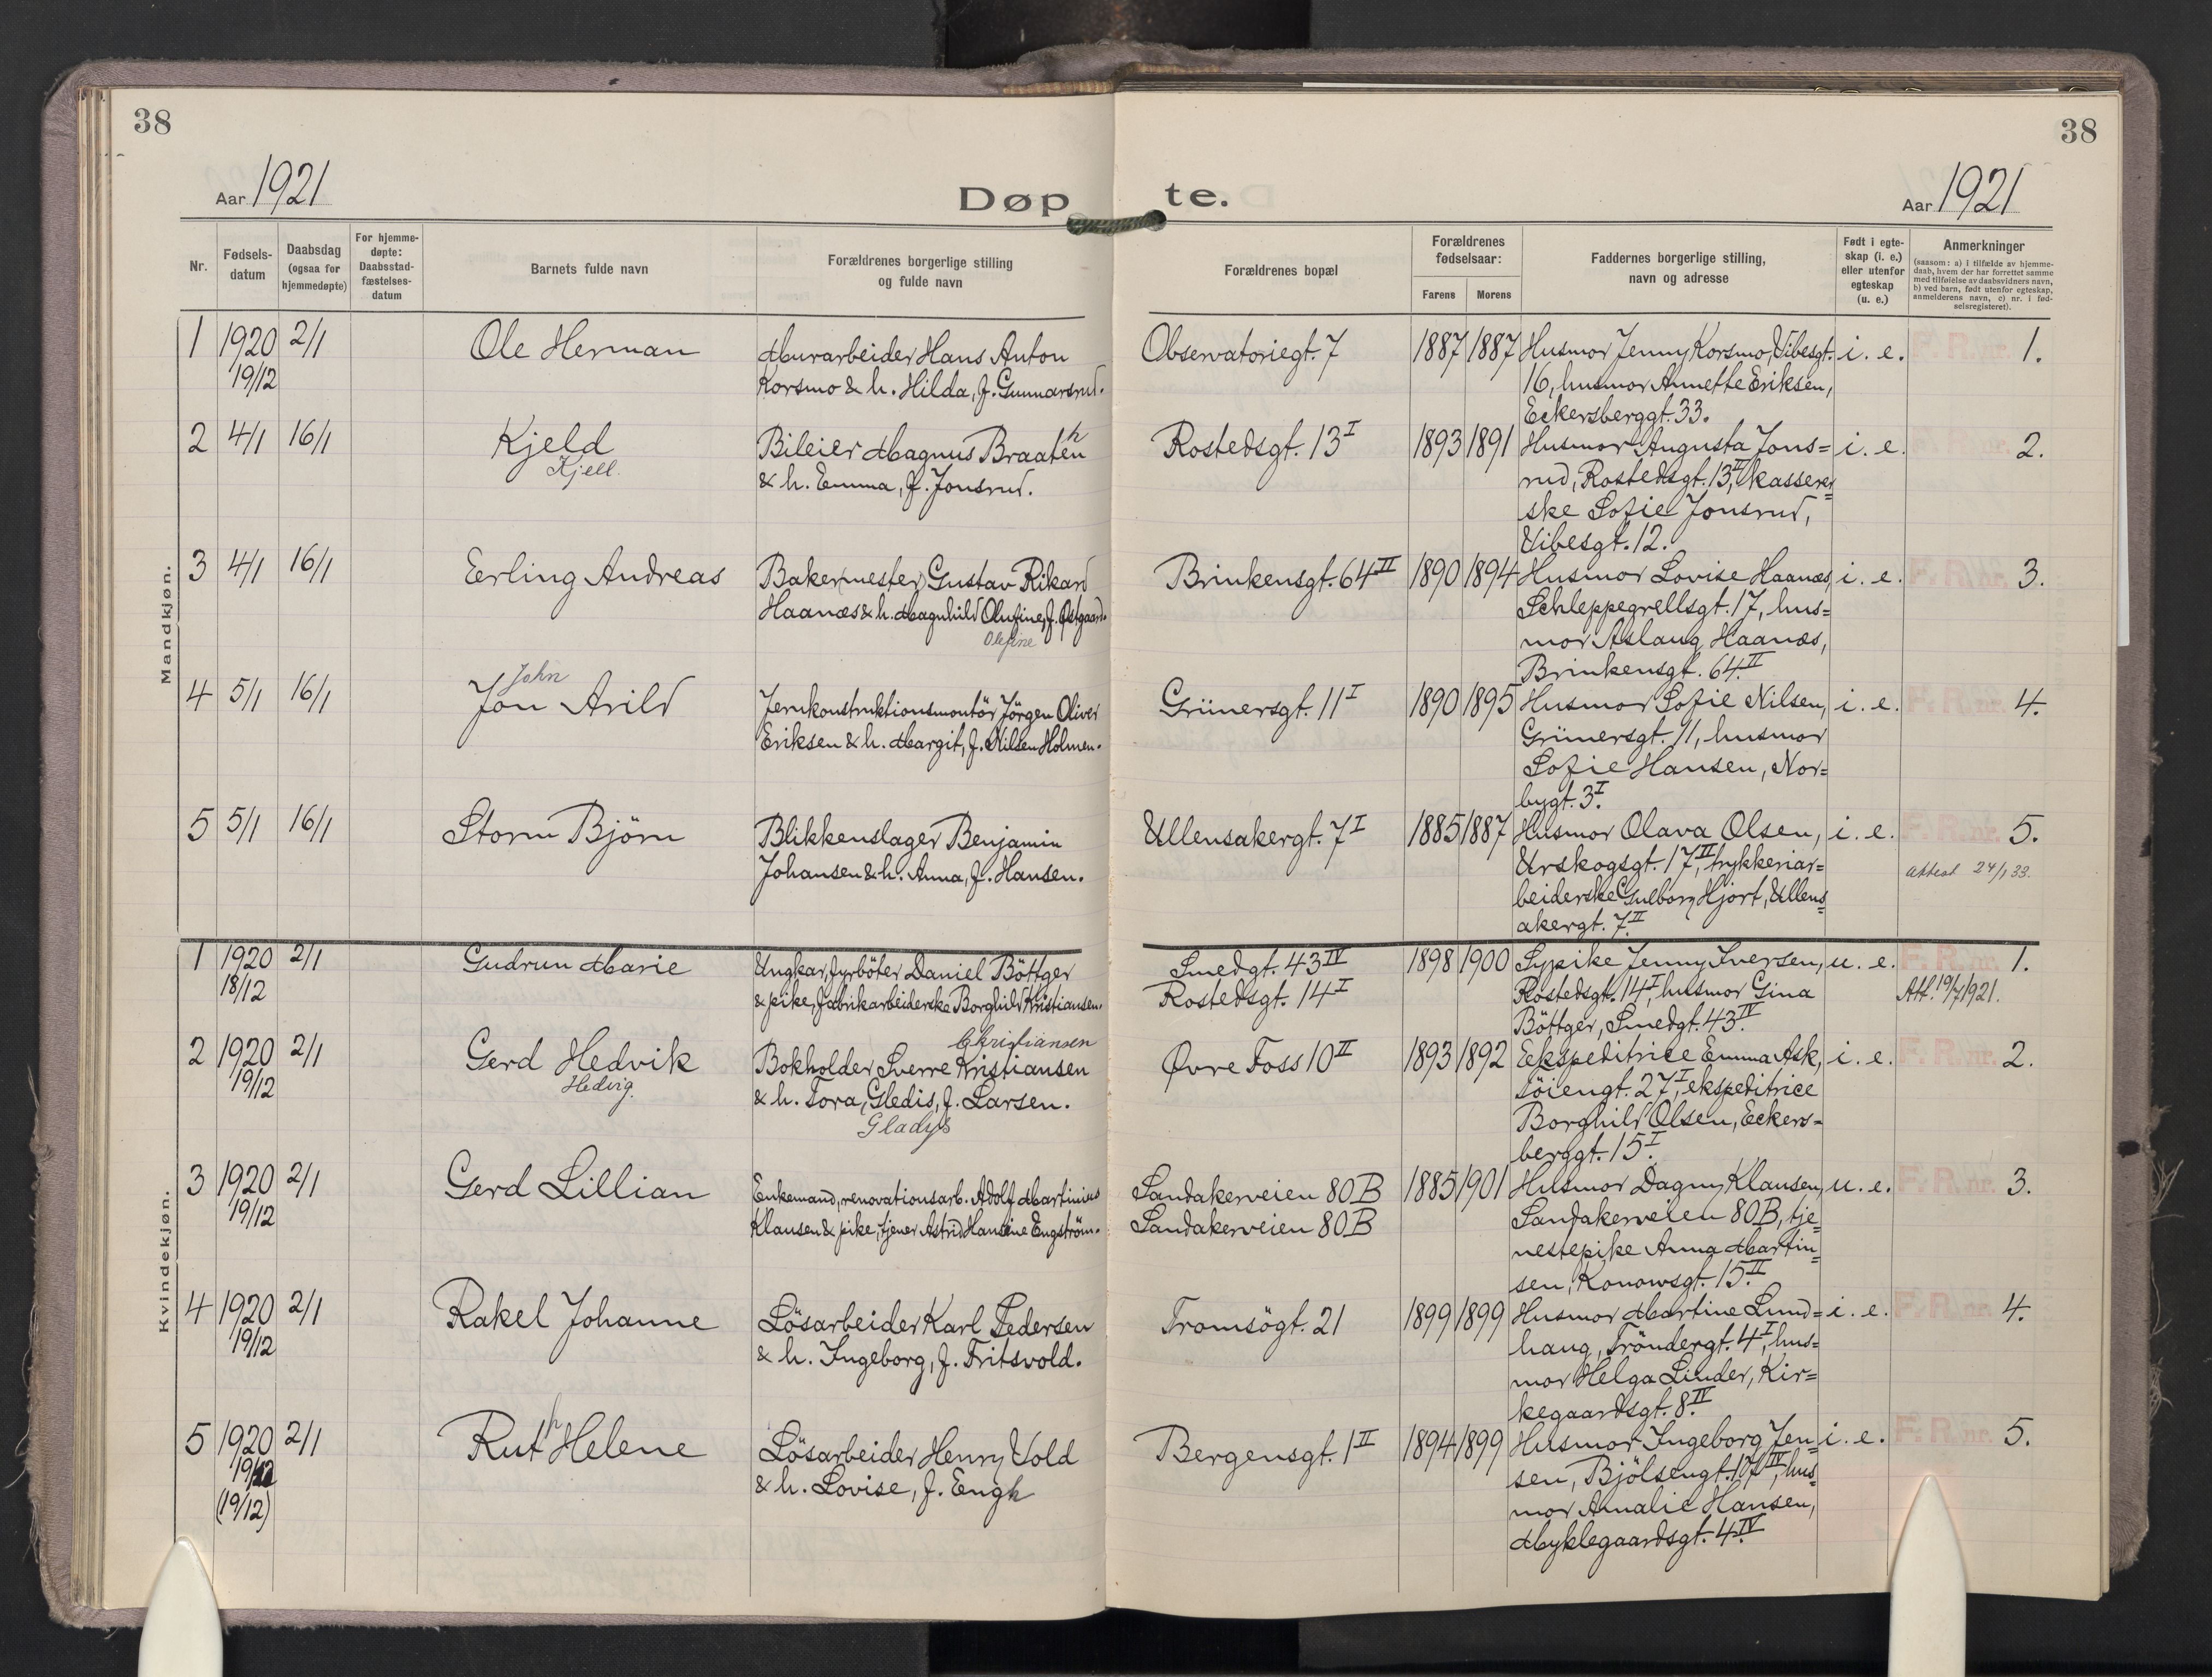 38
38
Aar 1921
Døpte.
Aar 1921
Nr.
Fødsels-
datum
Daabsdag
(ogsaa for
hjemmedøpte)
For hjemme-
døpte:
Daabsstad-
fæstelses-
datum
Barnets fulde navn
Forældrenes borgerlige stilling
og fulde navn
Forældrenes bopæl
Forældrenes
fødselsaar:
Farens
Morens
Faddernes borgerlige stilling,
navn og adresse
Født i egte-
skap (i. e.)
eller utenfor
egteskap
(u. e.)
Anmerkninger
(saasom: a) i tilfælde av hjemme-
daab, hvem der har forrettet samme
med tilføielse av daabsvidners navn,
b) ved barn, født utenfor egteskap,
anmelderens navn, c) nr. i fød-
selsregisteret).
Mandkjøn.
1 1920 2/1 Ole Herman
19/12
Murarbeider Hans Anton
Korsmo & h. Hilda, f. Gunnarsrud.
Observatoriegt. 7 1887 1887
Husmor Jenny Korsmo, Vibesgt.
16, husmor Annette Eriksen,
Eckersberggt. 33.
i. e. F. R. nr. 1.
2 4/1 16/1 Kjeld
Kjell.
Bileier Magnus Braathen
& h. Emma, f. Jonsrud.
Rostedsgt. 13 I 1893 1891
Husmor Augusta Jons=
rud, Rostedsgt. 13 II, kasserer=
ske Sofie Jonsrud,
Vibesgt. 12.
i. e. F. R. nr. 2.
3 4/1 16/1 Erling Andreas
Bakermester Gustav Rikard
Haanæs & h. Magnhild Olufine, f. Østgaard.
Olefine
Brinkensgt. 64 II 1890 1894
Husmor Lovise Haanæs,
Schleppegrellsgt. 17, hus=
mor Aslaug Haanæs,
Brinkensgt. 64 II
i. e. F. R. nr. 3.
John
4 5/1 16/1 Jon Arild
Jernkonstruktionsmontör Jörgen Oliver
Eriksen & h. Margit, f. Nilsen Holmen.
Grünersgt. 11 I 1890 1895
Husmor Sofie Nilsen,
Grünersgt. 11, husmor
Sofie Hansen, Nor=
bygt. 3 I.
i. e. F. R. nr. 4.
5 5/1 16/1 Storm Björn
Blikkenslager Benjamin
Johansen & h. Anna, f. Hansen.
Ullensakergt. 7 I 1885 1887
Husmor Olava Olsen,
Urskogsgt. 17 II, trykkeriar=
beiderske Gulborg Hjort, Ullens=
akergt. 7 II
i. e. F. R. nr. 5.
Attest 24/1 33.
Kvindekjøn.
1 1920 2/1 Gudrun Marie
18/12
Ungkar, fyrböter Daniel Böttger
& pike, fabrikarbeiderske Borghild Kristiansen.
Smedgt. 43 IV
Rostedsgt. 14 I
1898 1900
Sypike Jenny Iversen,
Rostedsgt. 14 I, husmor Gina
Böttger, Smedgt. 43 IV.
u. e. F. R. nr. 1.
Att. 19/7 1921.
2 1920 2/1 Gerd Hedvik
19/12 Hedvig.
Christiansen
Bokholder Sverre Kristiansen
& h. Tora, Gledis, f. Larsen.
Gladys
Øvre Foss 10 II 1893 1892
Ekspeditrice Emma Ask,
Töiengt. 27 I, ekspeditrice
Borghild Olsen, Eckers=
berggt. 15 I.
i. e. F. R. nr. 2.
3 1920 2/1 Gerd Lillian
19/12
Enkemand, renovationsarb. Adolf Martinius
Klausen & pike, tjener Astrid Hansine Engström.
Sandakerveien 80 B
Sandakerveien 80 B
1885 1901
Husmor Dagny Klausen,
Sandakerveien 80 B, tje=
nestepike Anna Martin=
sen, Konowsgt. 15 II.
u. e. F. R. nr. 3.
4 1920 2/1 Rakel Johanne
19/12
Lösarbeider Karl Pedersen
& h. Ingeborg, f. Fritsvold.
Tromsögt. 21 1899 1899
Husmor Martine Lund=
haug, Tröndergt. 4 I, hus=
mor Helga Linder, Kir=
kegaardsgt. 8 IV
i. e. F. R. nr. 4.
5 1920 2/1 Ruth Helene
19/12
(19/12)
Lösarbeider Henry Vold
& h. Lovise, f. Engh
Bergensgt. 1 II 1894 1899
Husmor Ingeborg Jen=
sen, Bjölsengt. 107 IV, hus=
mor Amalie Hansen,
Myklegaardsgt. 4 IV.
i. e. F. R. nr. 5.